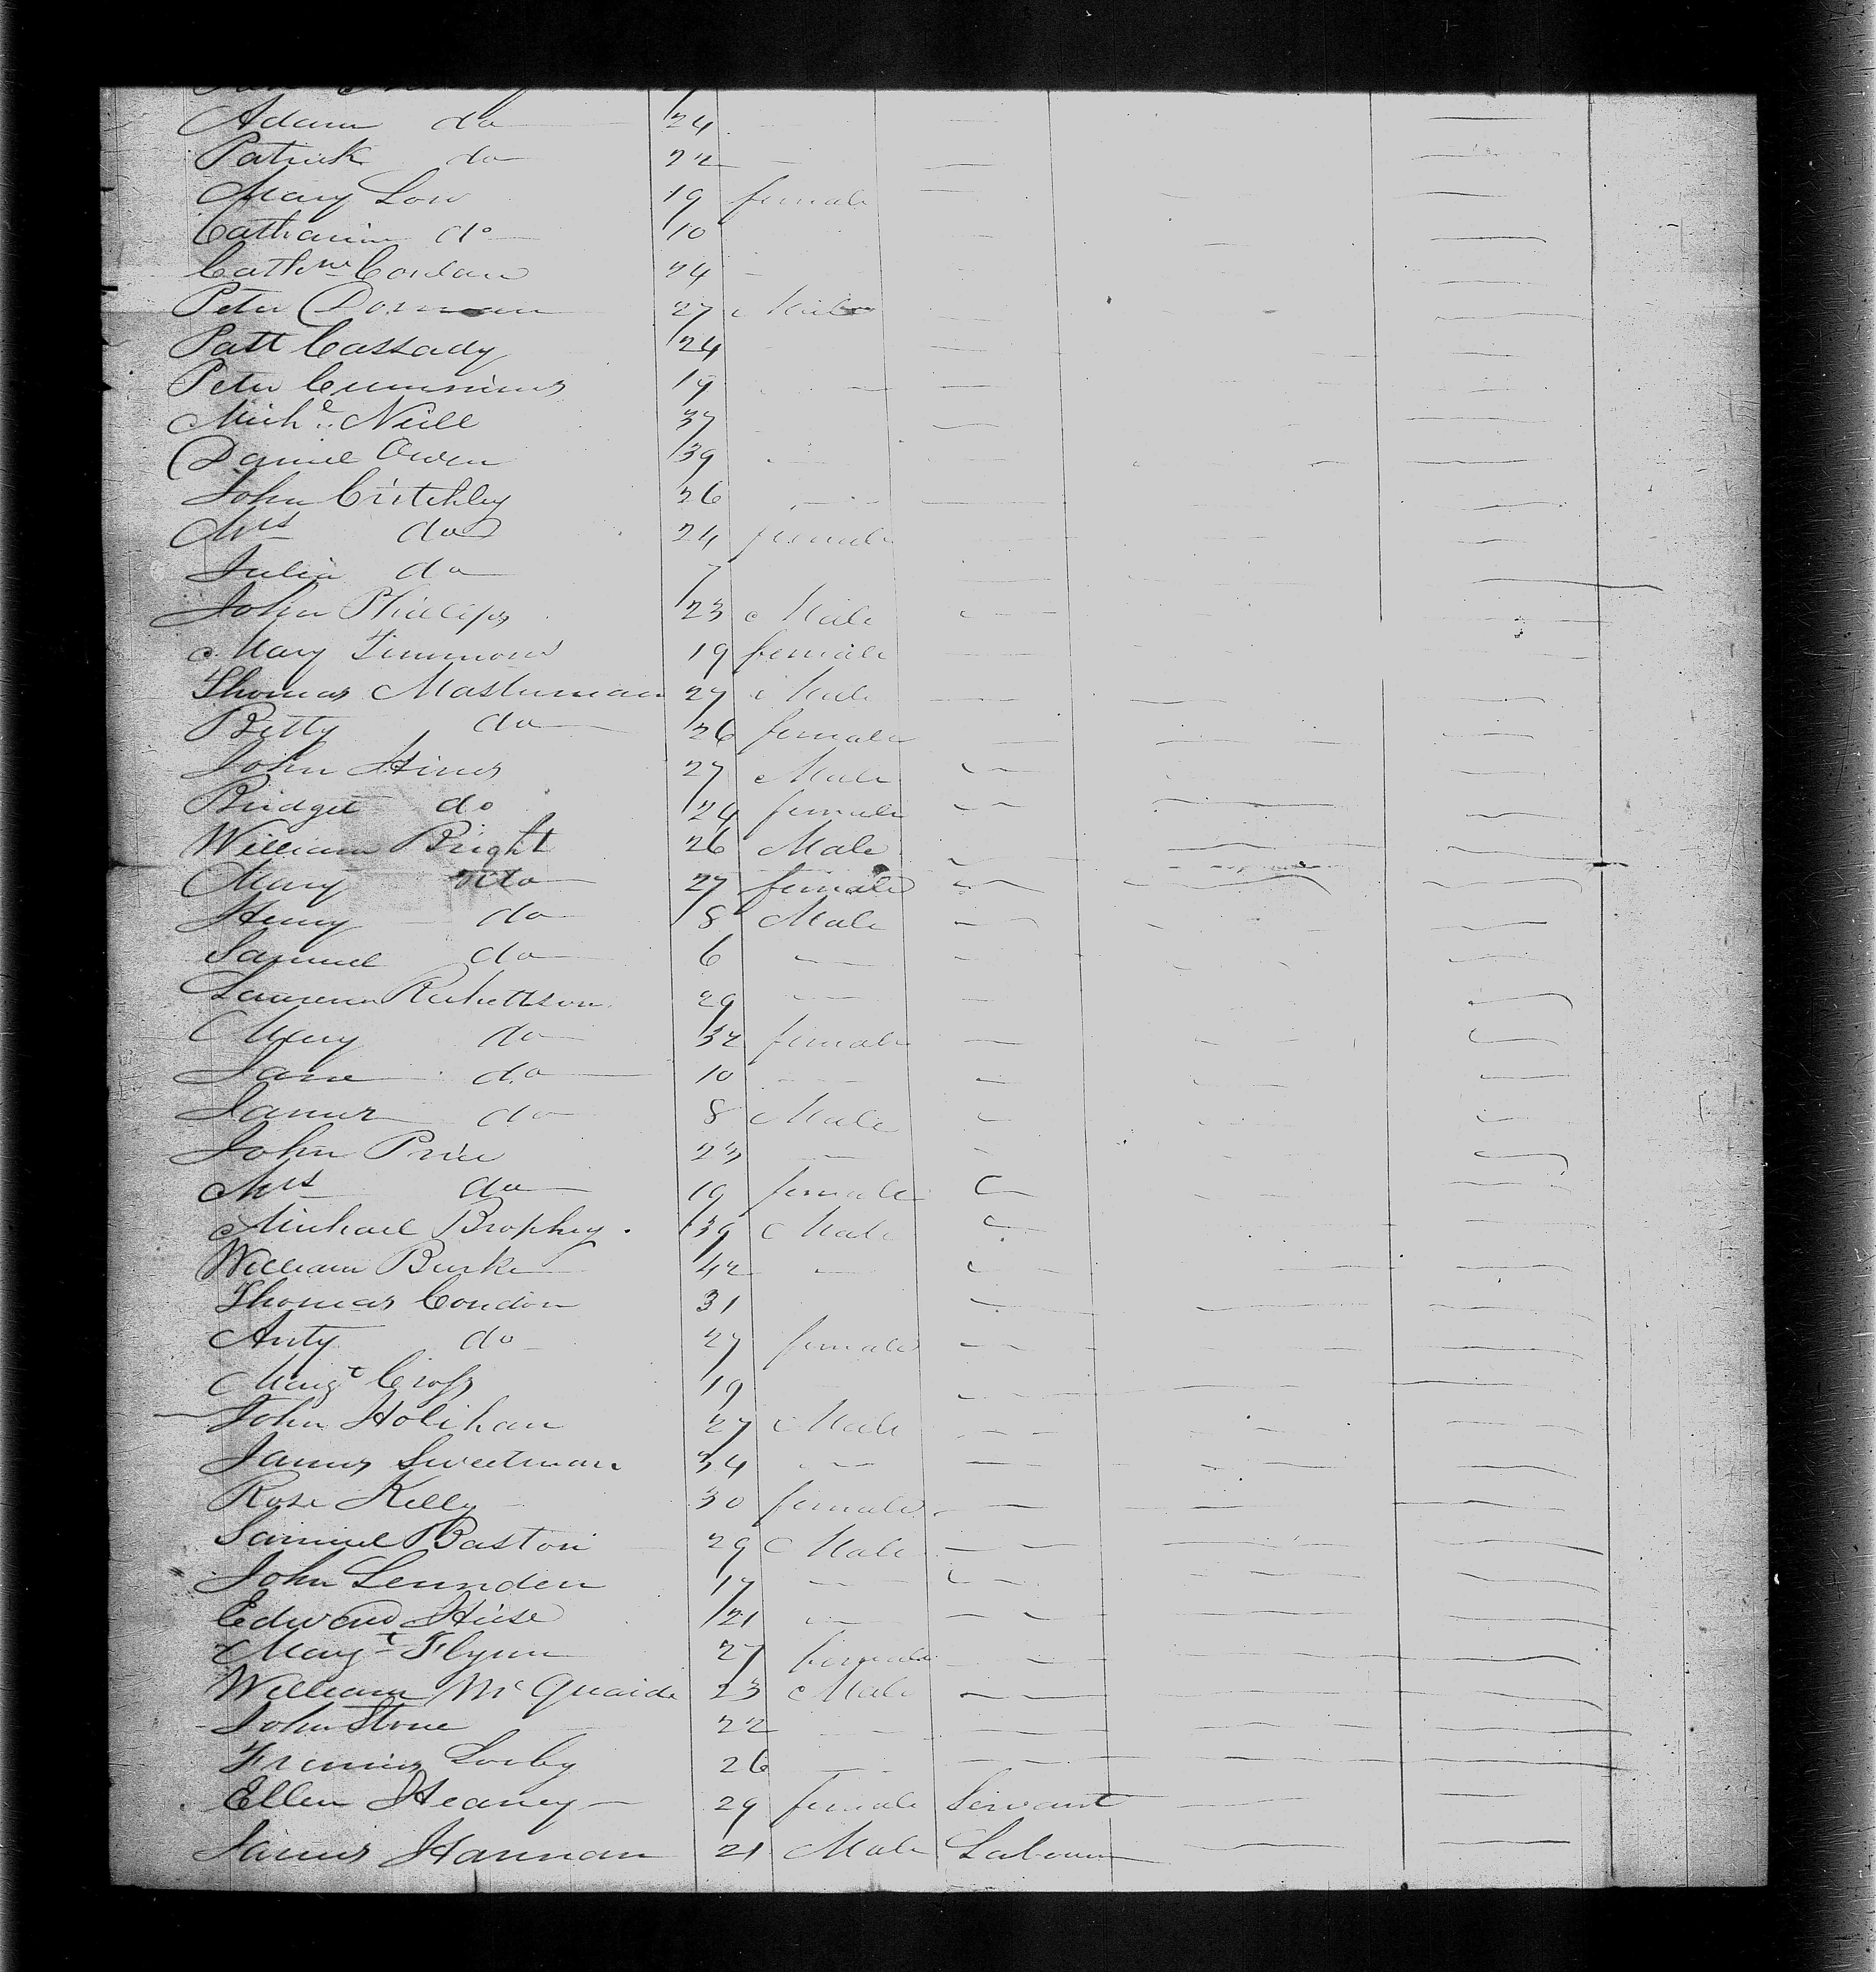 Adam do 24
Patrick do 22
Mary Low 19 female
Catharine do 10
Cathne Conlan 24
Peter Dorman 27 Male
Patt Cassady 24
Peter Cummins 19
Michl Neill 37
Daniel Owen 39
John Critchley 26
Mrs do 24 female
Julia do 7
John Phillips 23 Male
Mary Timmons 19 female
Thomas Masterman 27 Male
Betty do 26 female
John Hines 27 Male
Bridget do 24 female
William Bright 26 Male
Mary do 27 female
Henry do 8 Male
Samuel do 6
Laurence Rickettson 29
Mary do 32 female
Jane do 10
James do 8 Male
John Price 23
Mrs do 19 female
Michael Brophy 39 Male
William Burke 42
Thomas Condon 31
Anty do 27 female
Margt Cross 19
John Holihan 27 Male
James Sweetman 34
Rose Kelly 30 female
Samuel Baston 29 Male
John Lennden 17
Edward Huse 21
Margt Flynn 27 female
William McQuaide 23 Male
John Stone 22
Francis Losby 26
Ellen Heaney 29 female Servant
James Hannan 21 Male Labourer